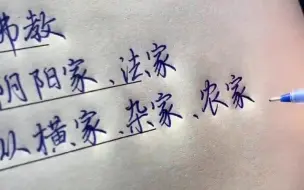 佛教
阴阳家、法家
纵横家、杂家、农家